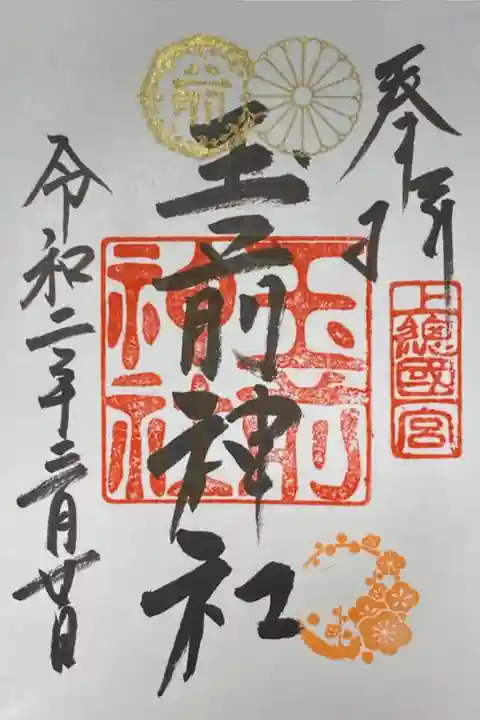 奉拝
上總國一宮
玉前神社
玉前神社
令和二年三月廿日